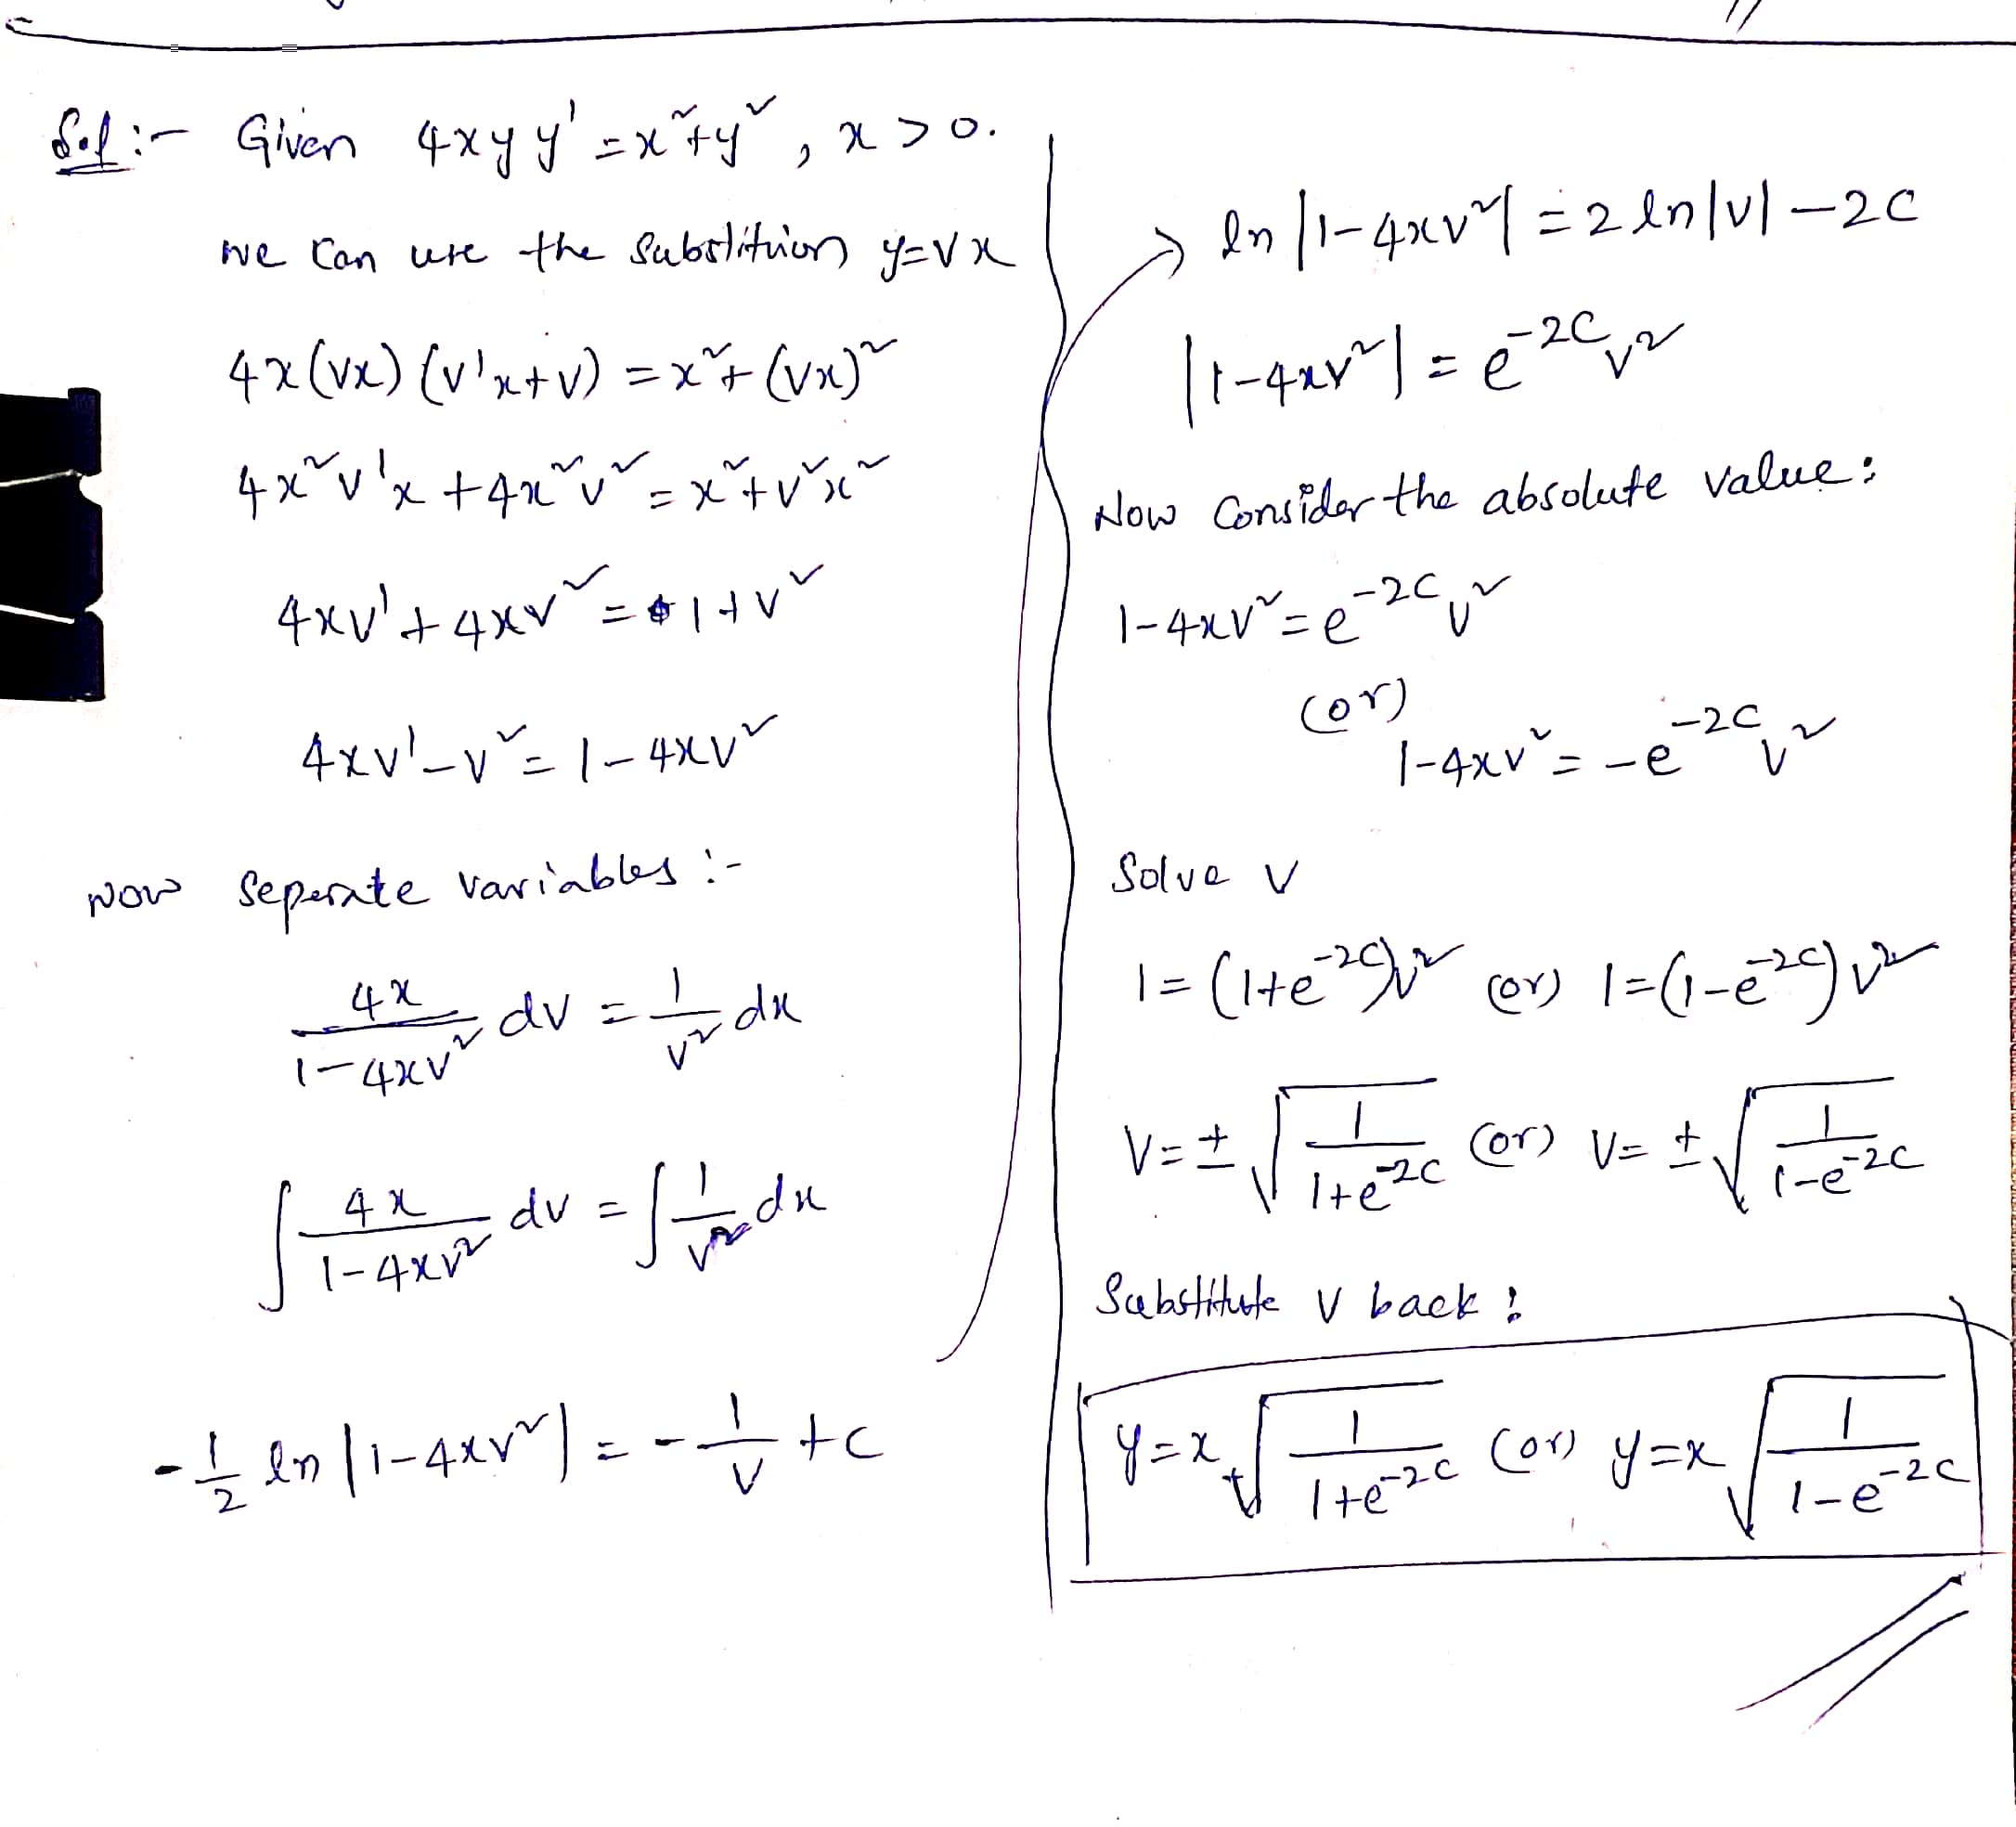 Sol :- Given 4xyy' = x² + y², x > 0.
we can use the Substitution y = vx
4x(vx)(v'x+v) = x² + (vx)²
4x²v'x + 4x²v² = x² + v²x²
4xv' + 4xv² = 1 + v²
4xv' - v² = 1 - 4xv²
Now Seperate variables :-
4x/(1-4xv²) dv = 1/v² dx
∫ 4x/(1-4xv²) dv = ∫ 1/v² dx
-1/2 ln |1-4xv²| = -1/v + c
→ ln |1-4xv²| = 2 ln|v| - 2C
|1-4xv²| = e^(-2C) v²
Now Consider the absolute value :
1-4xv² = e^(-2C) v²
(or)
1-4xv² = -e^(-2C) v²
Solve v
1 = (1+e^(-2C))v² (or) 1 = (1-e^(-2C)) v²
V = ± √(1/(1+e^(-2C))) (or) V = ± √(1/(1-e^(-2C)))
Substitute v back :
y = x √(1/(1+e^(-2C))) (or) y = x √(1/(1-e^(-2C)))